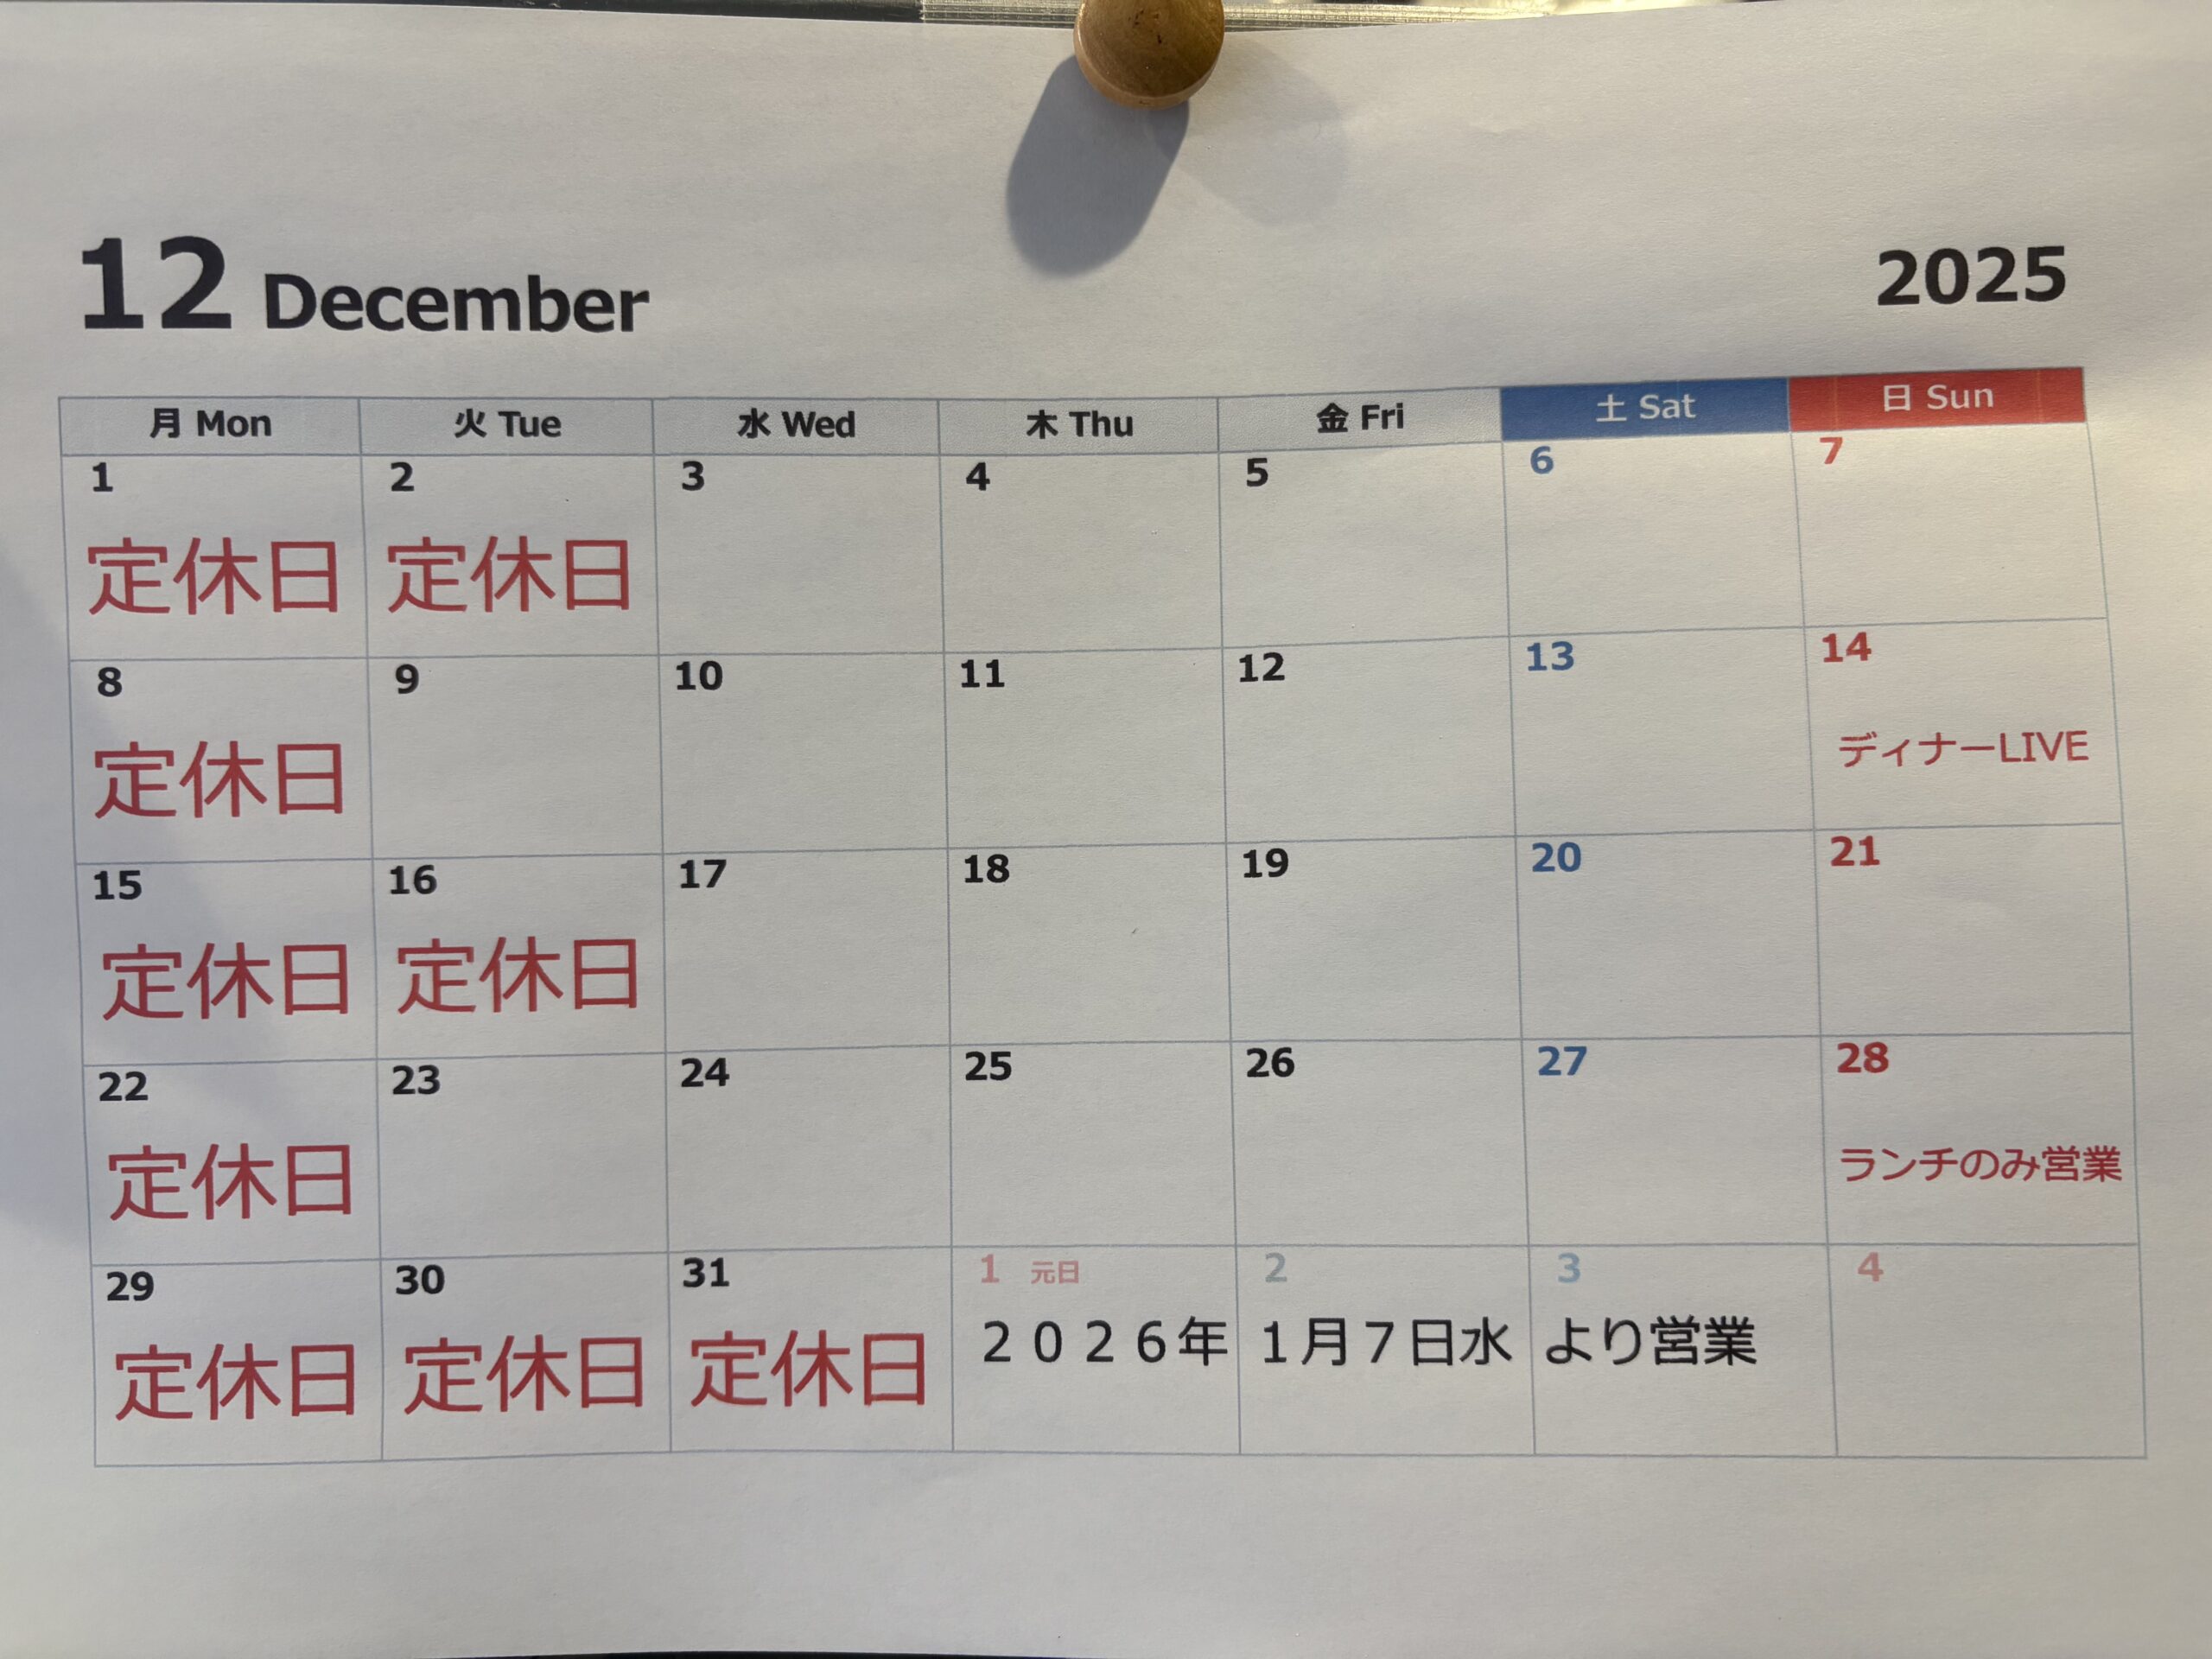 12 December 2025
月 Mon 火 Tue 水 Wed 木 Thu 金 Fri 土 Sat 日 Sun
1 2 3 4 5 6 7
定休日 定休日
8 9 10 11 12 13 14
定休日 ディナーLIVE
15 16 17 18 19 20 21
定休日 定休日
22 23 24 25 26 27 28
定休日 ランチのみ営業
29 30 31 1 元日 2 3 4
定休日 定休日 定休日 2026年 1月7日水 より営業